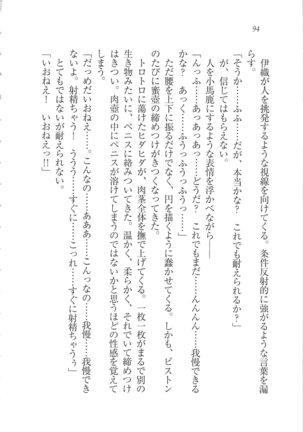 94
伊織が人を挑発するような視線を向けてくる。条件反射的に強がるような言葉を漏
らす。
「そうか……ふふ……だが、本当かな？　これでも耐えられるか？」
が、信じてはもらえない。
人を小馬鹿にするような表情を浮かべながら――
「んっふ……ふあっ……あっふ……んふうっ……ふっふっふっ……あっふ、んふうう
っ……ふあっ……あっく……ふうっふうっ……どうだ？　これでもまだ……んんんっ」
ただ腰を上下に振るだけでなく、円を描くように蠢かせてくる。しかも、ピストン
のたびに蜜壺の締めつけがきつくなってきた。
トロトロに蕩けたヒダヒダが、肉茎全体を撫で上げてくる。一枚一枚がまるで別の
生き物みたいに、ペニスに絡みついてきた。温かく、柔らかく、それでいて締めつけ
はきつい。肉壺の中にペニスが溶けてしまうのではないかと思うほどの性感を覚えて
しまう。
「だっめだいおねぇ……。こんなの……あああ……こんっなの……我慢……我慢でき
ないよ。射精ちゃう！　うううっ……すぐに……こっれ……すぐに射精ちゃうぅ」
とてもではないが耐えられない。
「いおねえ！　いおねえっ！！」